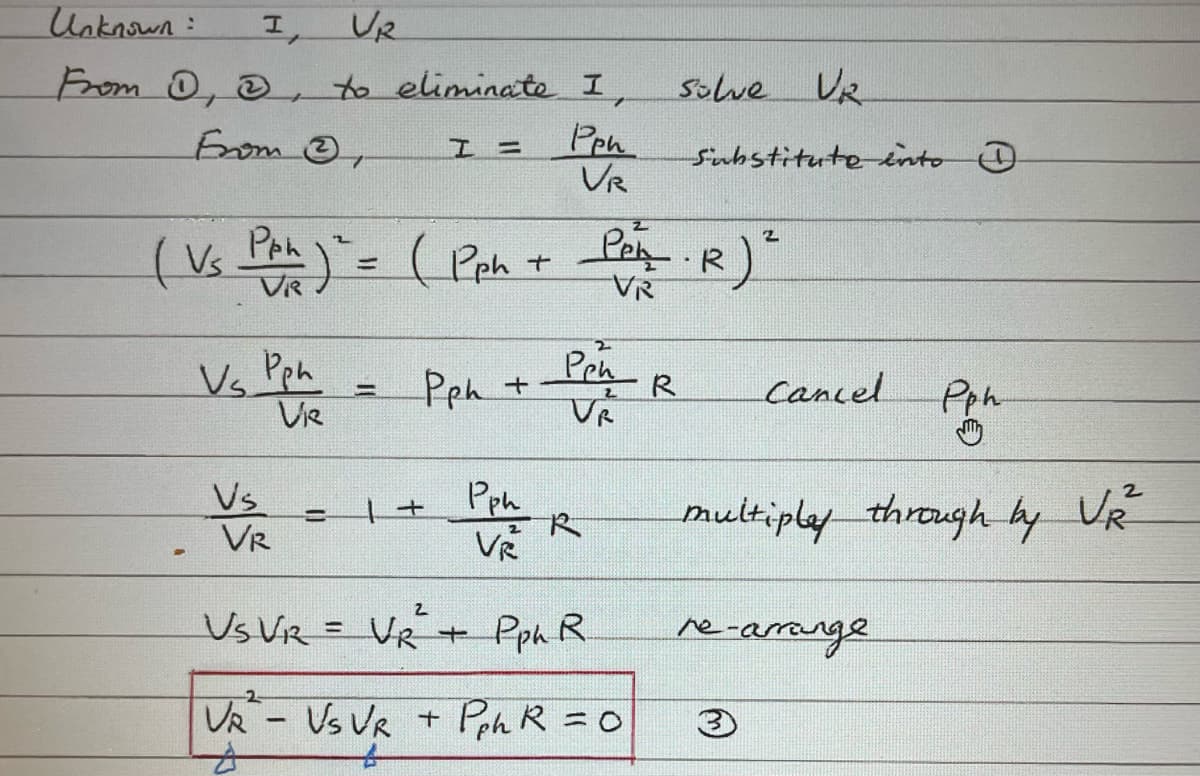 Unknown : I, VR
From ①, ②, to eliminate I, solve VR
From ②, I = Pph / VR substitute into ①
( Vs Pph / VR )² = ( Pph + Pph² / VR² · R )²
Vs Pph / VR = Pph + Pph² / VR² R cancel Pph
Vs / VR = 1 + Pph / VR² R multiply through by VR²
Vs VR = VR² + Pph R re-arrange
VR² - Vs VR + Pph R = 0 ③